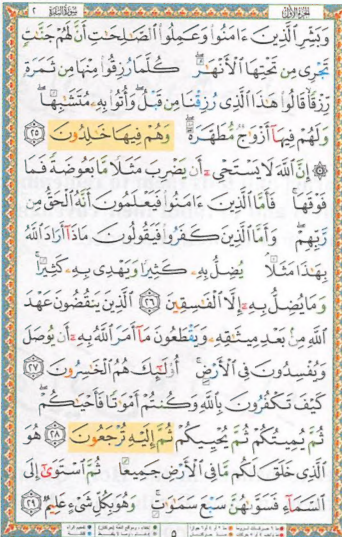 الجزء الأول
سورة البقرة ٢
وَبَشِّرِ الَّذِينَ ءَامَنُوا وَعَمِلُوا الصَّـٰلِحَـٰتِ أَنَّ لَهُمْ جَنَّـٰتٍ
تَجْرِى مِن تَحْتِهَا الْأَنْهَـٰرُ ۖ كُلَّمَا رُزِقُوا مِنْهَا مِن ثَمَرَةٍ
رِّزْقًا قَالُوا هَـٰذَا الَّذِى رُزِقْنَا مِن قَبْلُ ۖ وَأُتُوا بِهِۦ مُتَشَـٰبِهًا ۖ
وَلَهُمْ فِيهَآ أَزْوَٰجٌ مُّطَهَّرَةٌ ۖ وَهُمْ فِيهَا خَـٰلِدُونَ ٢٥
۞ إِنَّ اللَّهَ لَا يَسْتَحْىِۦٓ أَن يَضْرِبَ مَثَلًا مَّا بَعُوضَةً فَمَا
فَوْقَهَا ۚ فَأَمَّا الَّذِينَ ءَامَنُوا فَيَعْلَمُونَ أَنَّهُ الْحَقُّ مِن
رَّبِّهِمْ ۖ وَأَمَّا الَّذِينَ كَفَرُوا فَيَقُولُونَ مَاذَآ أَرَادَ اللَّهُ
بِهَـٰذَا مَثَلًا ۘ يُضِلُّ بِهِۦ كَثِيرًا وَيَهْدِى بِهِۦ كَثِيرًا ۚ
وَمَا يُضِلُّ بِهِۦٓ إِلَّا الْفَـٰسِقِينَ ٢٦ الَّذِينَ يَنقُضُونَ عَهْدَ
اللَّهِ مِنۢ بَعْدِ مِيثَـٰقِهِۦ وَيَقْطَعُونَ مَآ أَمَرَ اللَّهُ بِهِۦٓ أَن يُوصَلَ
وَيُفْسِدُونَ فِى الْأَرْضِ ۚ أُولَـٰٓئِكَ هُمُ الْخَـٰسِرُونَ ٢٧
كَيْفَ تَكْفُرُونَ بِاللَّهِ وَكُنتُمْ أَمْوَٰتًا فَأَحْيَـٰكُمْ ۖ
ثُمَّ يُمِيتُكُمْ ثُمَّ يُحْيِيكُمْ ثُمَّ إِلَيْهِ تُرْجَعُونَ ٢٨ هُوَ
الَّذِى خَلَقَ لَكُم مَّا فِى الْأَرْضِ جَمِيعًا ثُمَّ اسْتَوَىٰٓ إِلَى
السَّمَآءِ فَسَوَّىٰهُنَّ سَبْعَ سَمَـٰوَٰتٍ ۚ وَهُوَ بِكُلِّ شَىْءٍ عَلِيمٌ ٢٩
٥